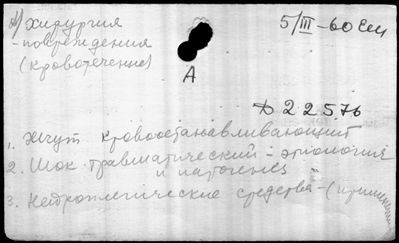 А) хирургия 5/III-60 Сем
- повреждения
(кровотечение)
А
Д 22576
1. Жгут кровоостанавливающий
2. Шок травматический - этиология
и патогенез
3. Нейроплегические средства - (примен